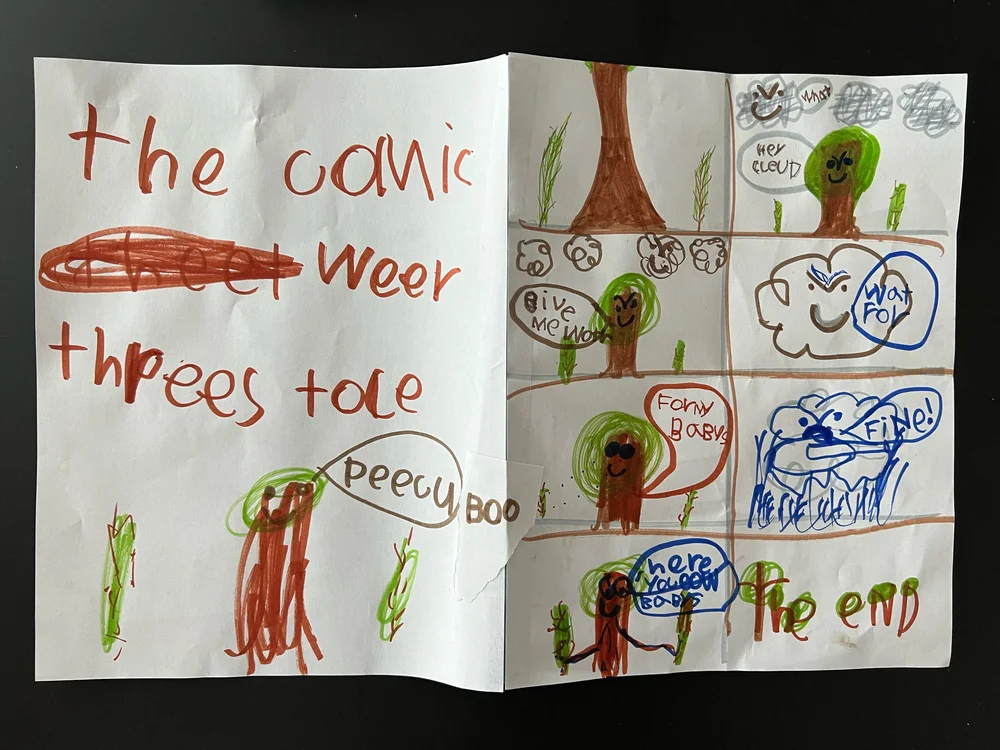 the comic
weer
threes tace
Peecu
BOO
what
HEY
CLEUD
Give
Me Wotr
Wat
FOr
Formy
BaBys
FiNe!
here
you gow
BaBys
The enD